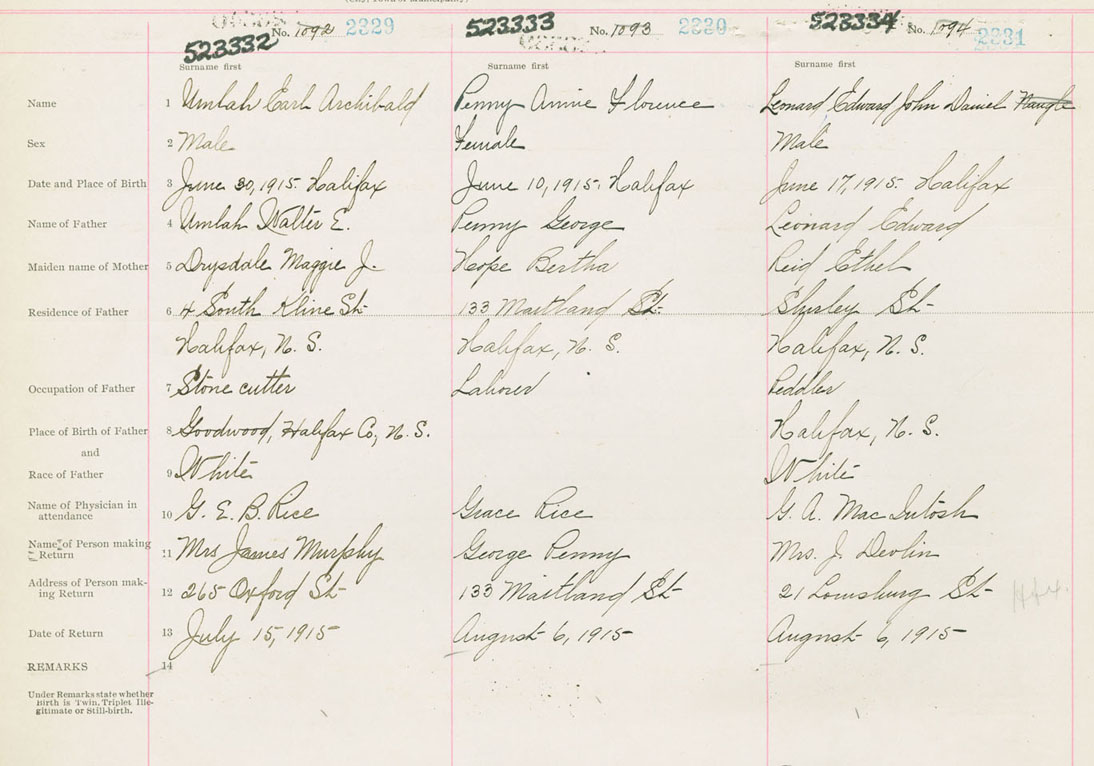 No. 1092 2329 523333 No. 1093 2330 523334 No. 1094 2331
523332
Surname first Surname first Surname first
Name 1 Umlah Earl Archibald Penny Annie Florence Leonard Edward John Daniel Naugle
Sex 2 Male Female Male
Date and Place of Birth 3 June 30, 1915. Halifax June 10, 1915. Halifax June 17, 1915. Halifax
Name of Father 4 Umlah Walter E. Penny George Leonard Edward
Maiden name of Mother 5 Drysdale Maggie J. Hope Bertha Reid Ethel
Residence of Father 6 4 South Kline St. 133 Maitland St. Shirley St.
Halifax, N. S. Halifax, N. S. Halifax, N. S.
Occupation of Father 7 Stone cutter Laborer Peddler
Place of Birth of Father 8 Goodwood, Halifax Co, N. S. Halifax, N. S.
and
Race of Father 9 White White
Name of Physician in
attendance 10 G. E. B. Rice Grace Rice G. A. MacIntosh
Name of Person making
Return 11 Mrs James Murphy George Penny Mrs. J. Devlin
Address of Person mak-
ing Return 12 265 Oxford St. 133 Maitland St. 21 Louisburg St. Hfx.
Date of Return 13 July 15, 1915 August 6, 1915 August 6, 1915
REMARKS 14
Under Remarks state whether
Birth is Twin, Triplet Ille-
gitimate or Still-birth.